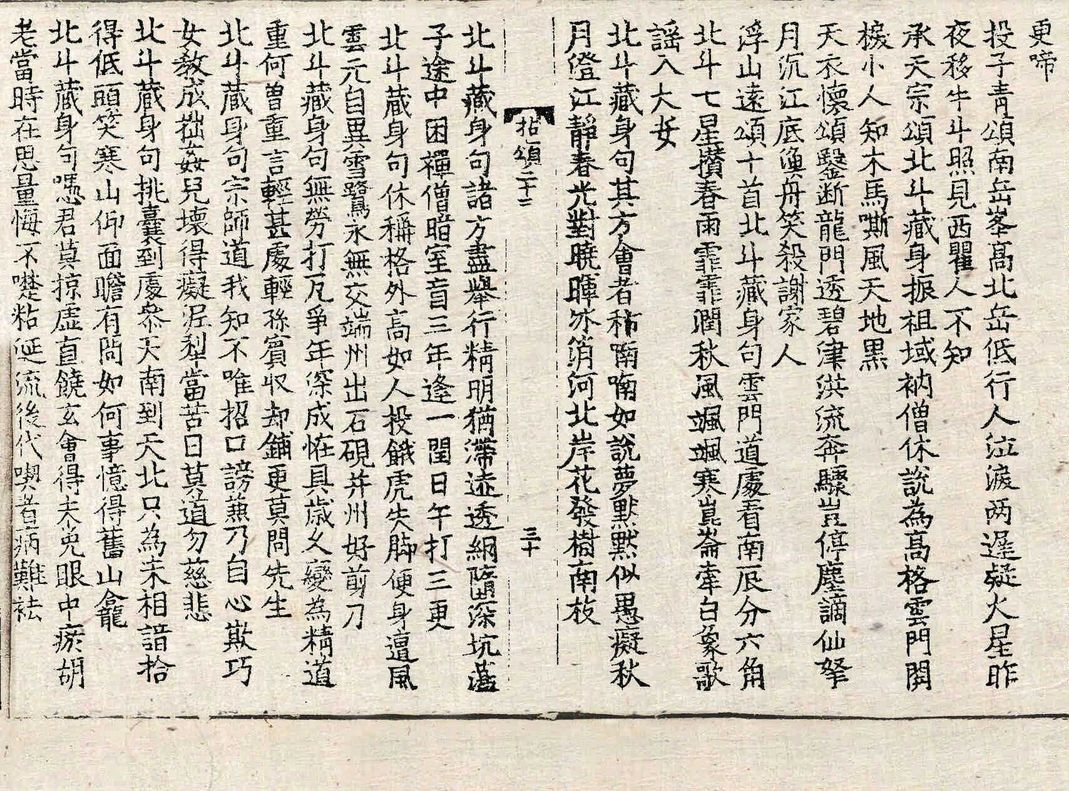 更啼
投子青頌南岳峯高北岳低行人泣淚两遲疑火星昨
夜移牛斗照見西瞿人不知
承天宗頌北斗藏身振祖域衲僧休說為高格雲門関
棙小人知木馬嘶風天地黒
天衣懷頌鑿断龍門透碧津洪流奔驟豈停塵謫仙拏
月沉江底漁舟笑殺謝家人
浮山遠頌十首北斗藏身句雲門道處看南辰分六角
北斗七星攢春雨霏霏潤秋風颯颯寒崑崙牽白象歌
謡入大安
北斗藏身句其方會者稀喃喃如說夢默默似愚癡秋
月澄江靜春光對曉暉冰消河北岸花發樹南枝
拈頌二十二 三十
北斗藏身句諸方盡舉行精明猶滯迹透網墮深坑蕩
子途中困禪僧暗室盲三年逢一閏日午打三更
北斗藏身句休稱格外高如人投餓虎失脚便身遭風
雲元自異雪鷺永無交端州出石硯并州好剪刀
北斗藏身句無勞打瓦爭年深成恠具歲久變為精道
重何曽重言輕甚處輕孫賓収却鋪更莫問先生
北斗藏身句宗師道我知不唯招口謗兼乃自心欺巧
女教成拙姦兒壞得癡泥犁當苦日莫道勿慈悲
北斗藏身句挑囊到處叅天南到天北只為未相諳拾
得低頭笑寒山仰面瞻有問如何事憶得舊山龕
北斗藏身句慿君莫掠虛直饒玄會得未免眼中瘀胡
老當時在思量悔不𡢃粘涎流後代喫者病難袪